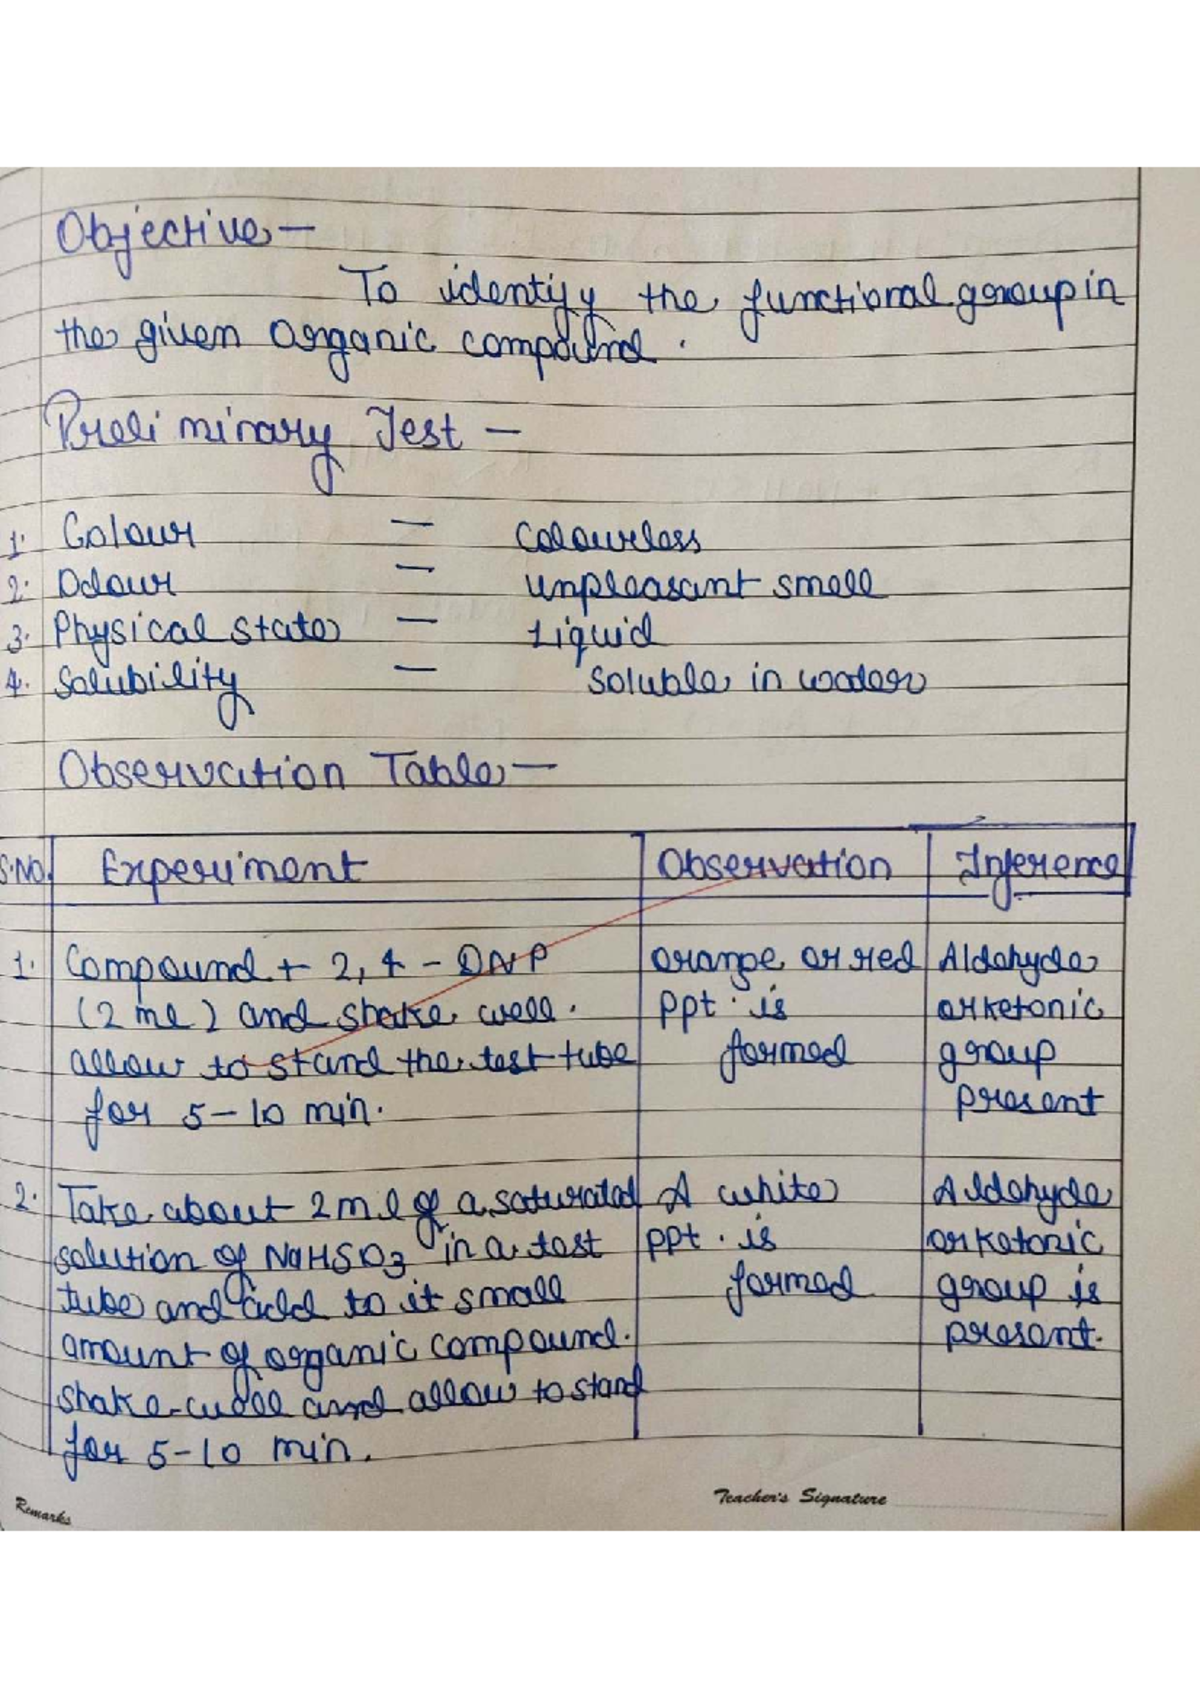 Objective –
To identify the functional group in
the given organic compound.
Preliminary Test –
1. Colour – Colourless
2. Odour – unpleasant smell
3. Physical state – Liquid
4. Solubility – Soluble in water
Observation Table –
S.No. Experiment Observation Inference
1. Compound + 2, 4 - DNP orange or red Aldehyde
(2 ml) and shake well. ppt. is or ketonic
allow to stand the test tube formed group
for 5-10 min. present
2. Take about 2ml of a saturated A white Aldehyde
solution of NaHSO3 in a test ppt. is or Ketonic
tube and add to it small formed group is
amount of organic compound. present.
shake well and allow to stand
for 5-10 min.
Teacher's Signature
Remarks